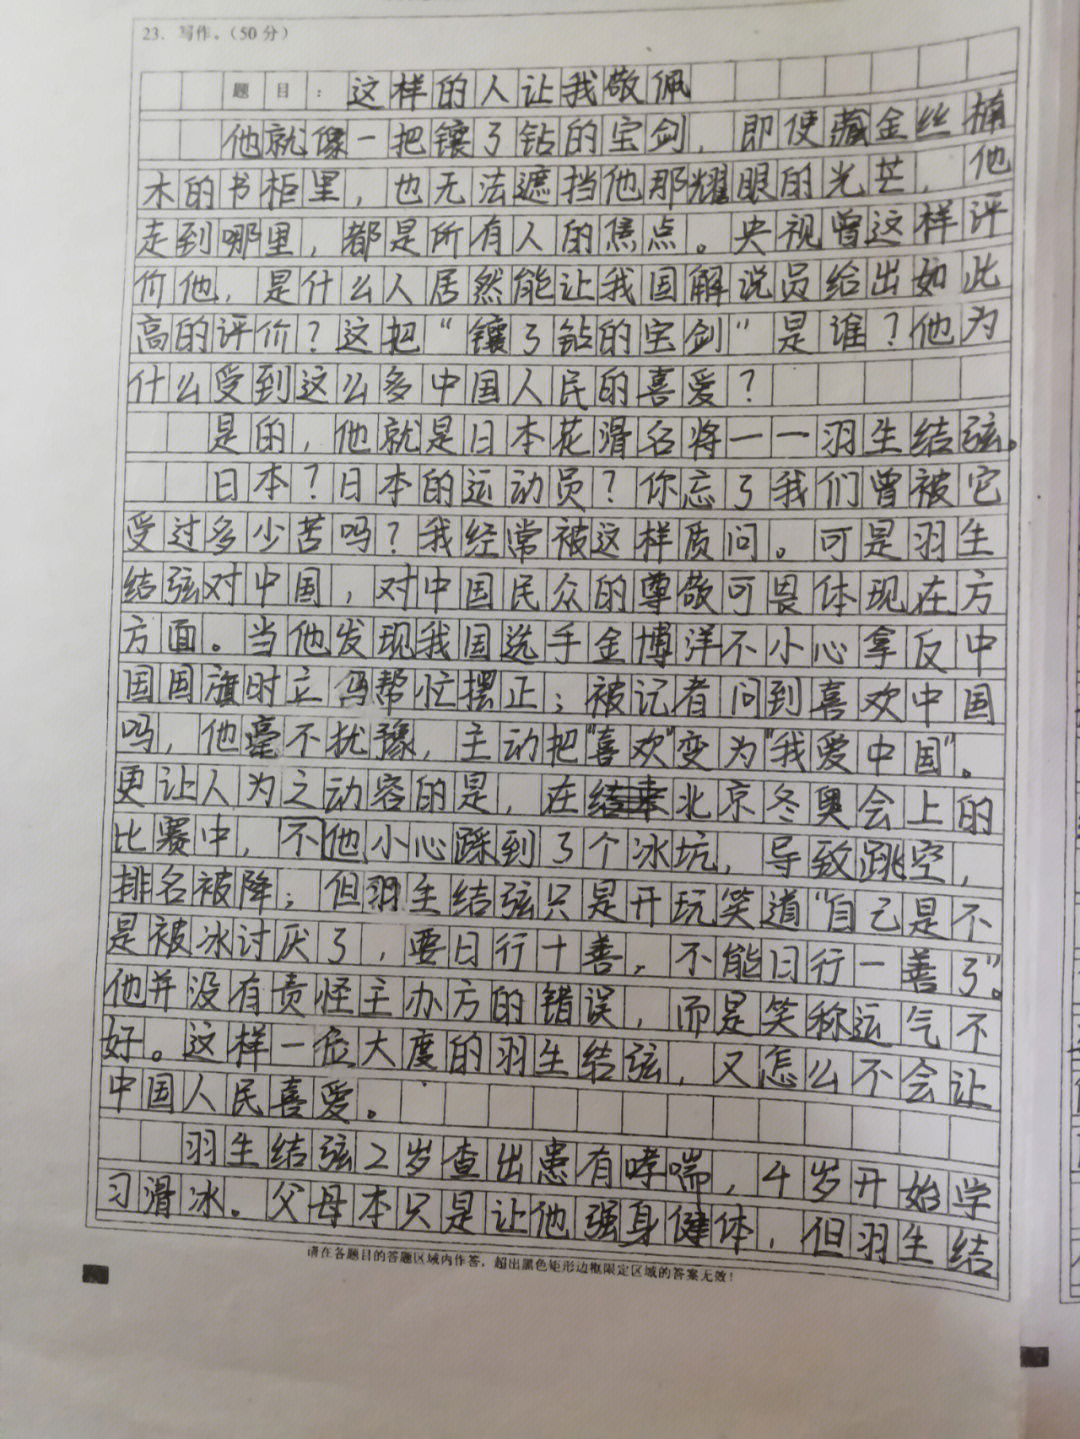 23. 写作。(50分)
题目：这样的人让我敬佩
他就像一把镶了钻的宝剑，即使藏金丝楠
木的书柜里，也无法遮挡他那耀眼的光芒，他
走到哪里，都是所有人的焦点。央视曾这样评
价他，是什么人居然能让我国解说员给出如此
高的评价？这把“镶了钻的宝剑”是谁？他为
什么受到这么多中国人民的喜爱？
是的，他就是日本花滑名将——羽生结弦。
日本？日本的运动员？你忘了我们曾被它
受过多少苦吗？我经常被这样质问。可是羽生
结弦对中国，对中国民众的尊敬可畏体现在方
方面。当他发现我国选手金博洋不小心拿反中
国国旗时立马帮忙摆正；被记者问到喜欢中国
吗，他毫不扰豫，主动把“喜欢”变为“我爱中国”。
更让人为之动容的是，在北京冬奥会上的
比赛中，不他小心踩到了个冰坑，导致跳空，
排名被降；但羽生结弦只是开玩笑道“自己是不
是被冰讨厌了，要日行十善，不能日行一善了”。
他并没有责怪主办方的错误，而是笑称运气不
好。这样一位大度的羽生结弦，又怎么不会让
中国人民喜爱。
羽生结弦2岁查出患有哮喘，4岁开始学
习滑冰。父母本只是让他强身健体，但羽生结
请在各题目的答题区域内作答，超出黑色矩形边框限定区域的答案无效！